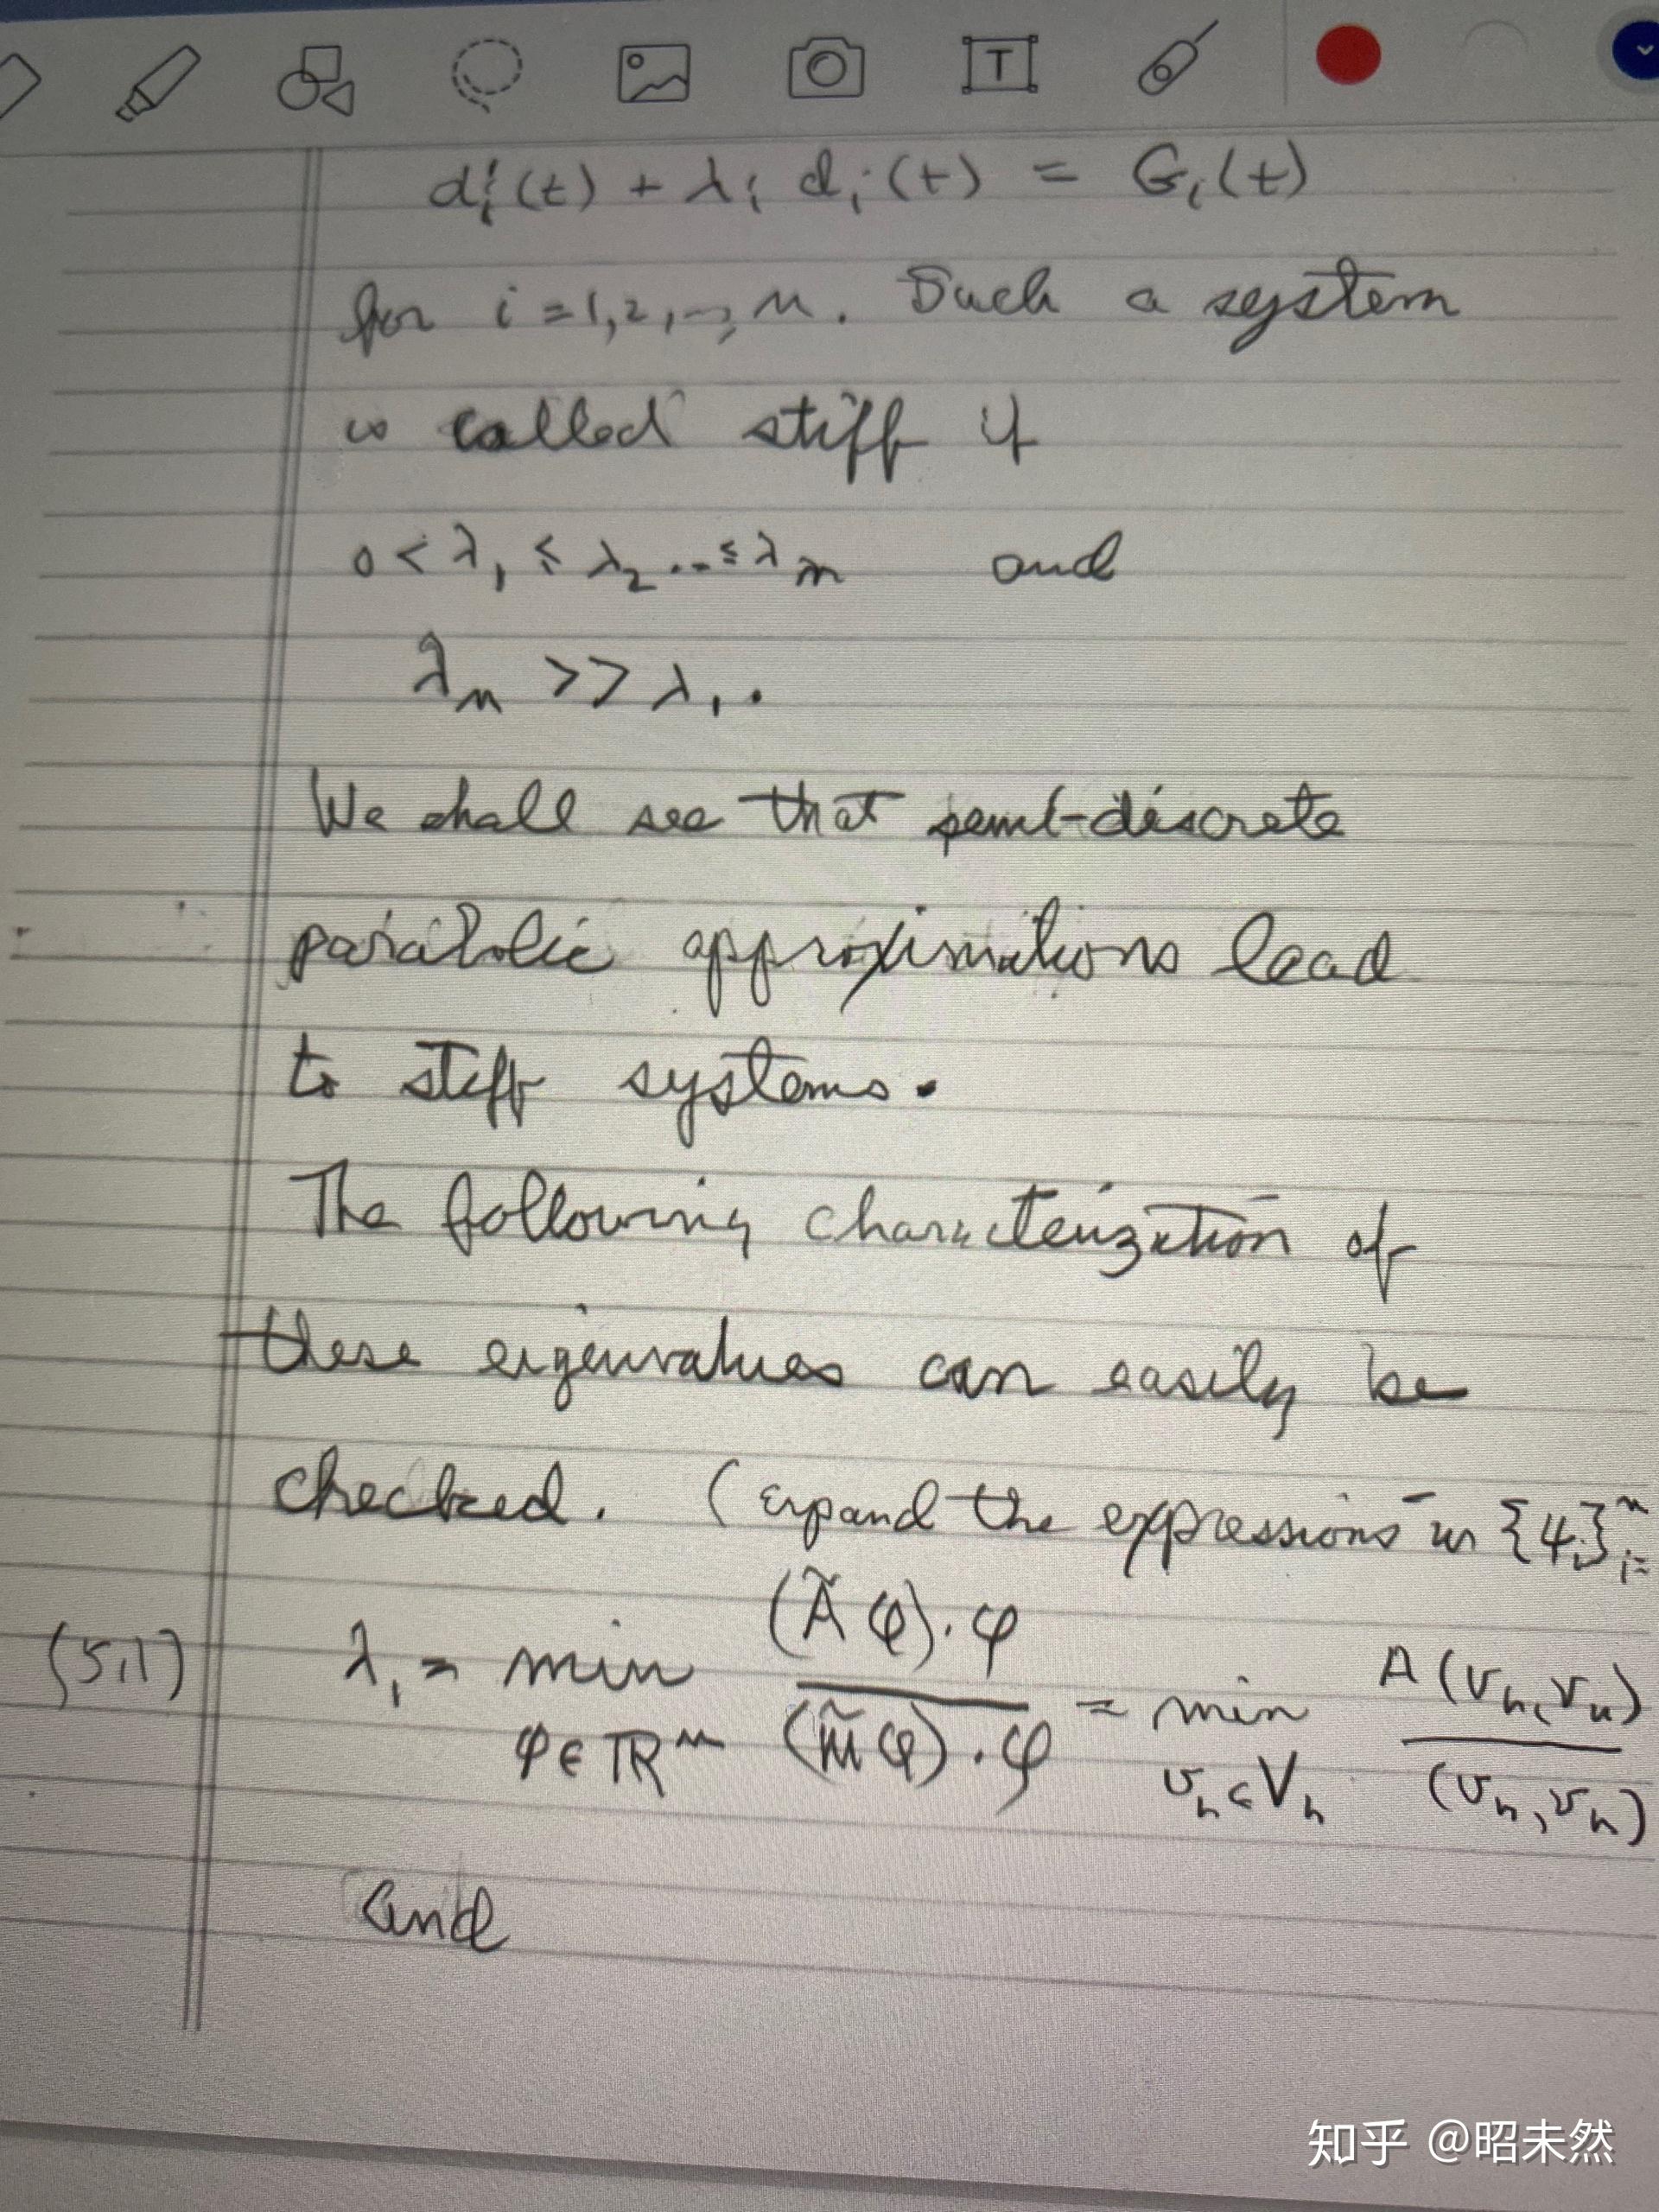 T
d_i'(t) + λ_i d_i(t) = G_i(t)
for i=1,2,..,n. Such a system
is called stiff if
0 < λ_1 ≤ λ_2 ... ≤ λ_n and
λ_n >> λ_1.
We shall see that semi-discrete
parabolic approximations lead
to stiff systems.
The following characterization of
these eigenvalues can easily be
checked. (expand the expressions in {ψ_i}_{i=}^n
(5.1) λ_1 = min_{φ∈ℝ^n} (Ãφ)·φ / (M̃φ)·φ = min_{v_h∈V_h} A(v_h,v_h) / (v_h,v_h)
and
知乎 @昭未然